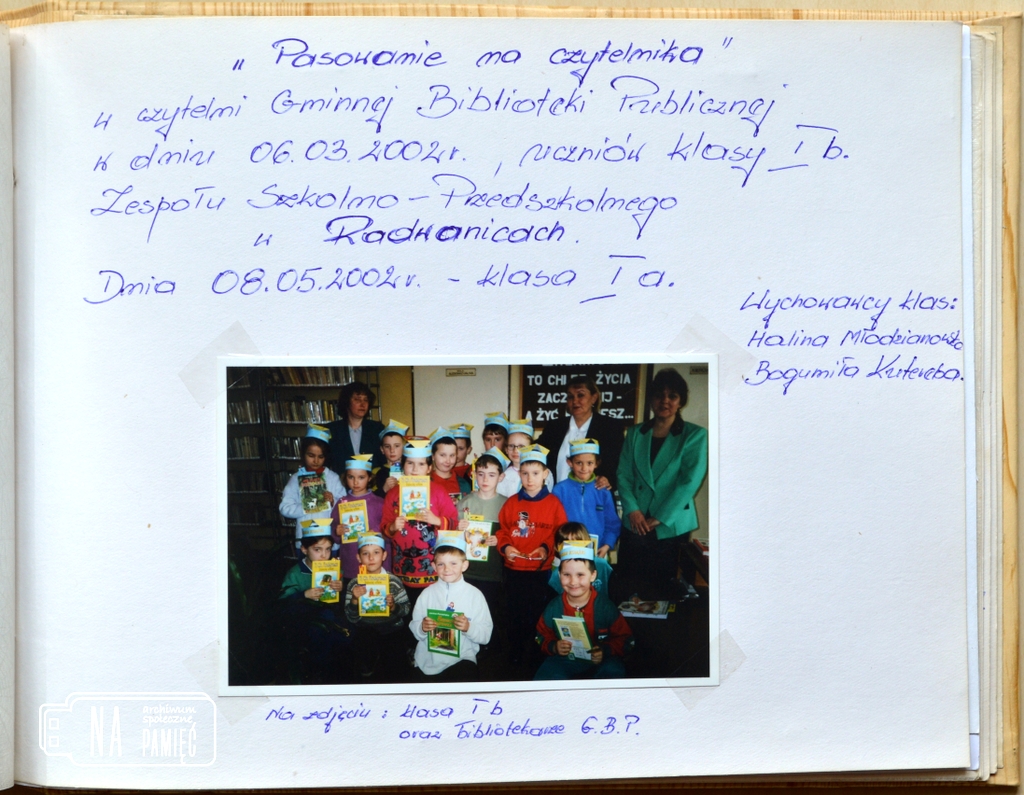 „Pasowanie na czytelnika”
w czytelni Gminnej Biblioteki Publicznej
w dniu 06.03.2002r., uczniów klasy I b.
Zespołu Szkolno – Przedszkolnego
w Radwanicach.
Dnia 08.05.2002r. – klasa I a.
Wychowawcy klas:
Halina Młodzianowska
Bogumiła
TO CHLEB ŻYCIA
A ŻYĆ
Na zdjęciu: klasa I b
oraz bibliotekarze G.B.P.
NA
archiwum
społeczne
PAMIĘĆ